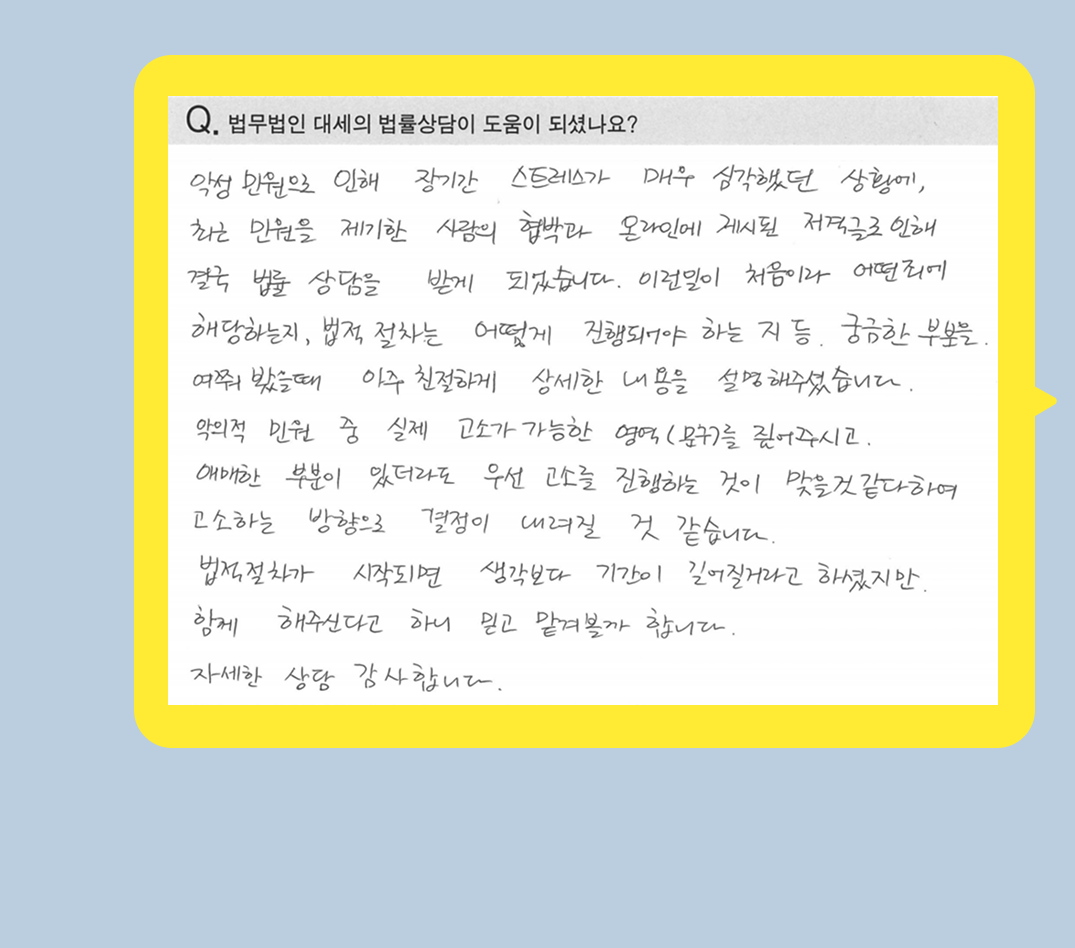 Q. 법무법인 대세의 법률상담이 도움이 되셨나요?
악성 민원으로 인해 장기간 스트레스가 매우 심각했던 상황에,
최근 민원을 제기한 사람의 협박과 온라인에 게시된 저격글로 인해
결국 법률 상담을 받게 되었습니다. 이런일이 처음이라 어떤죄에
해당하는지, 법적 절차는 어떻게 진행되어야 하는 지 등. 궁금한 부분을.
여쭤 봤을때 아주 친절하게 상세한 내용을 설명해주셨습니다.
악의적 민원 중 실제 고소가 가능한 영역(문구)를 짚어주시고.
애매한 부분이 있더라도 우선 고소를 진행하는 것이 맞을것 같다하여
고소하는 방향으로 결정이 내려질 것 같습니다.
법적절차가 시작되면 생각보다 기간이 길어질거라고 하셨지만.
함께 해주신다고 하니 믿고 맡겨볼까 합니다.
자세한 상담 감사합니다.